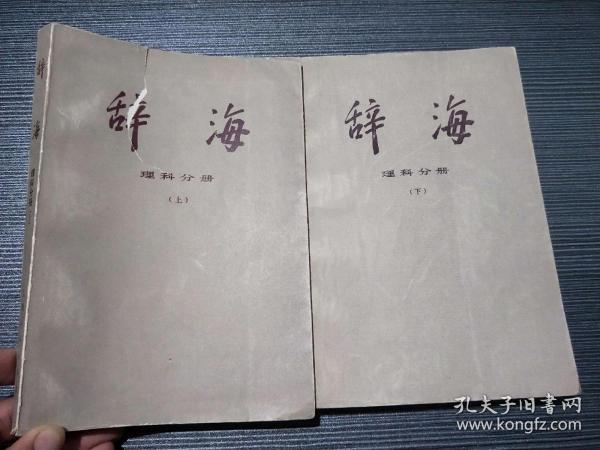 辞海
辞海
理科分册
（上）
辞海
理科分册
（下）
孔夫子旧书网
www.kongfz.com